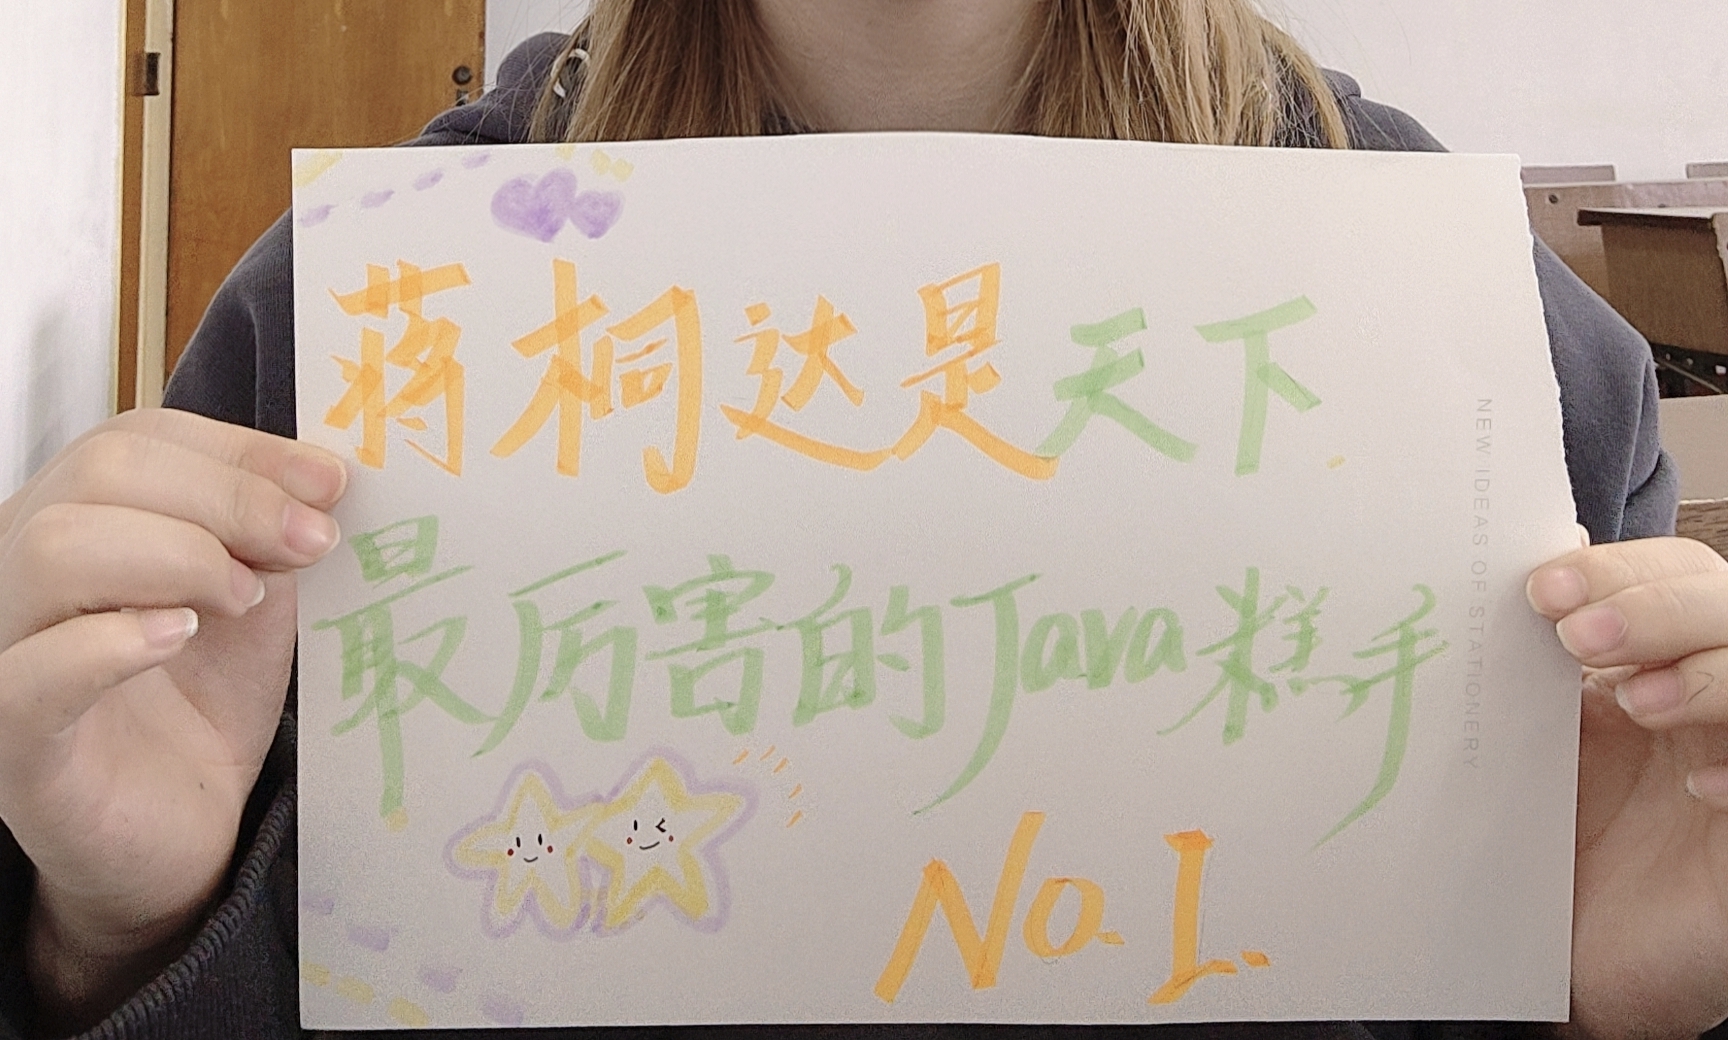 蒋桐达是天下
最厉害的Java糕手
No.1.
NEW IDEAS OF STATIONERY